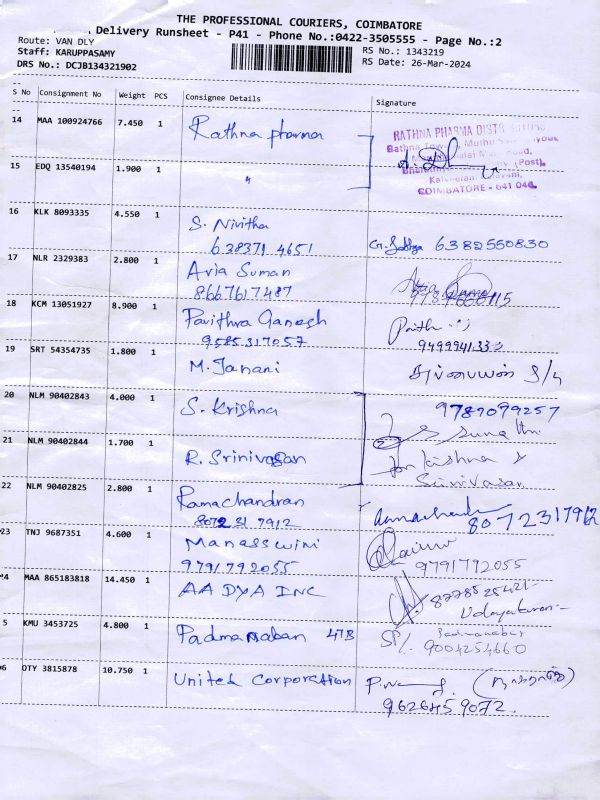 THE PROFESSIONAL COURIERS, COIMBATORE
Delivery Runsheet - P41 - Phone No.:0422-3505555 - Page No.:2
Route: VAN DLY
Staff: KARUPPASAMY
DRS No.: DCJB134321902
RS No.: 1343219
RS Date: 26-Mar-2024
S No Consignment No Weight PCS Consignee Details Signature
14 MAA 100924766 7.450 1 Rathna pharma
RATHNA PHARMA
COIMBATORE - 641 046
15 EDQ 13540194 1.900 1 "
16 KLK 8093335 4.550 1 S. Nivitha
638371 4651 6382550830
17 NLR 2329383 2.800 1 Avia Suman
8667617487
18 KCM 13051927 8.900 1 Pavithra Ganesh
9585317057
19 SRT 54354735 1.800 1 M. Janani
20 NLM 90402843 4.000 1 S. Krishna 9789099257
21 NLM 90402844 1.700 1 R. Srinivasan for Krishna &
Srinivasan
22 NLM 90402825 2.800 1 Ramachandran
8072 31 7912 8072317912
23 TNJ 9687351 4.600 1 Manasswini
9791792055 9791792055
24 MAA 865183818 14.450 1 AADYA INC
Udayakumar
5 KMU 3453725 4.800 1 Padmanaban 47B
9004254660
6 OTY 3815878 10.750 1 United Corporation
9626459072